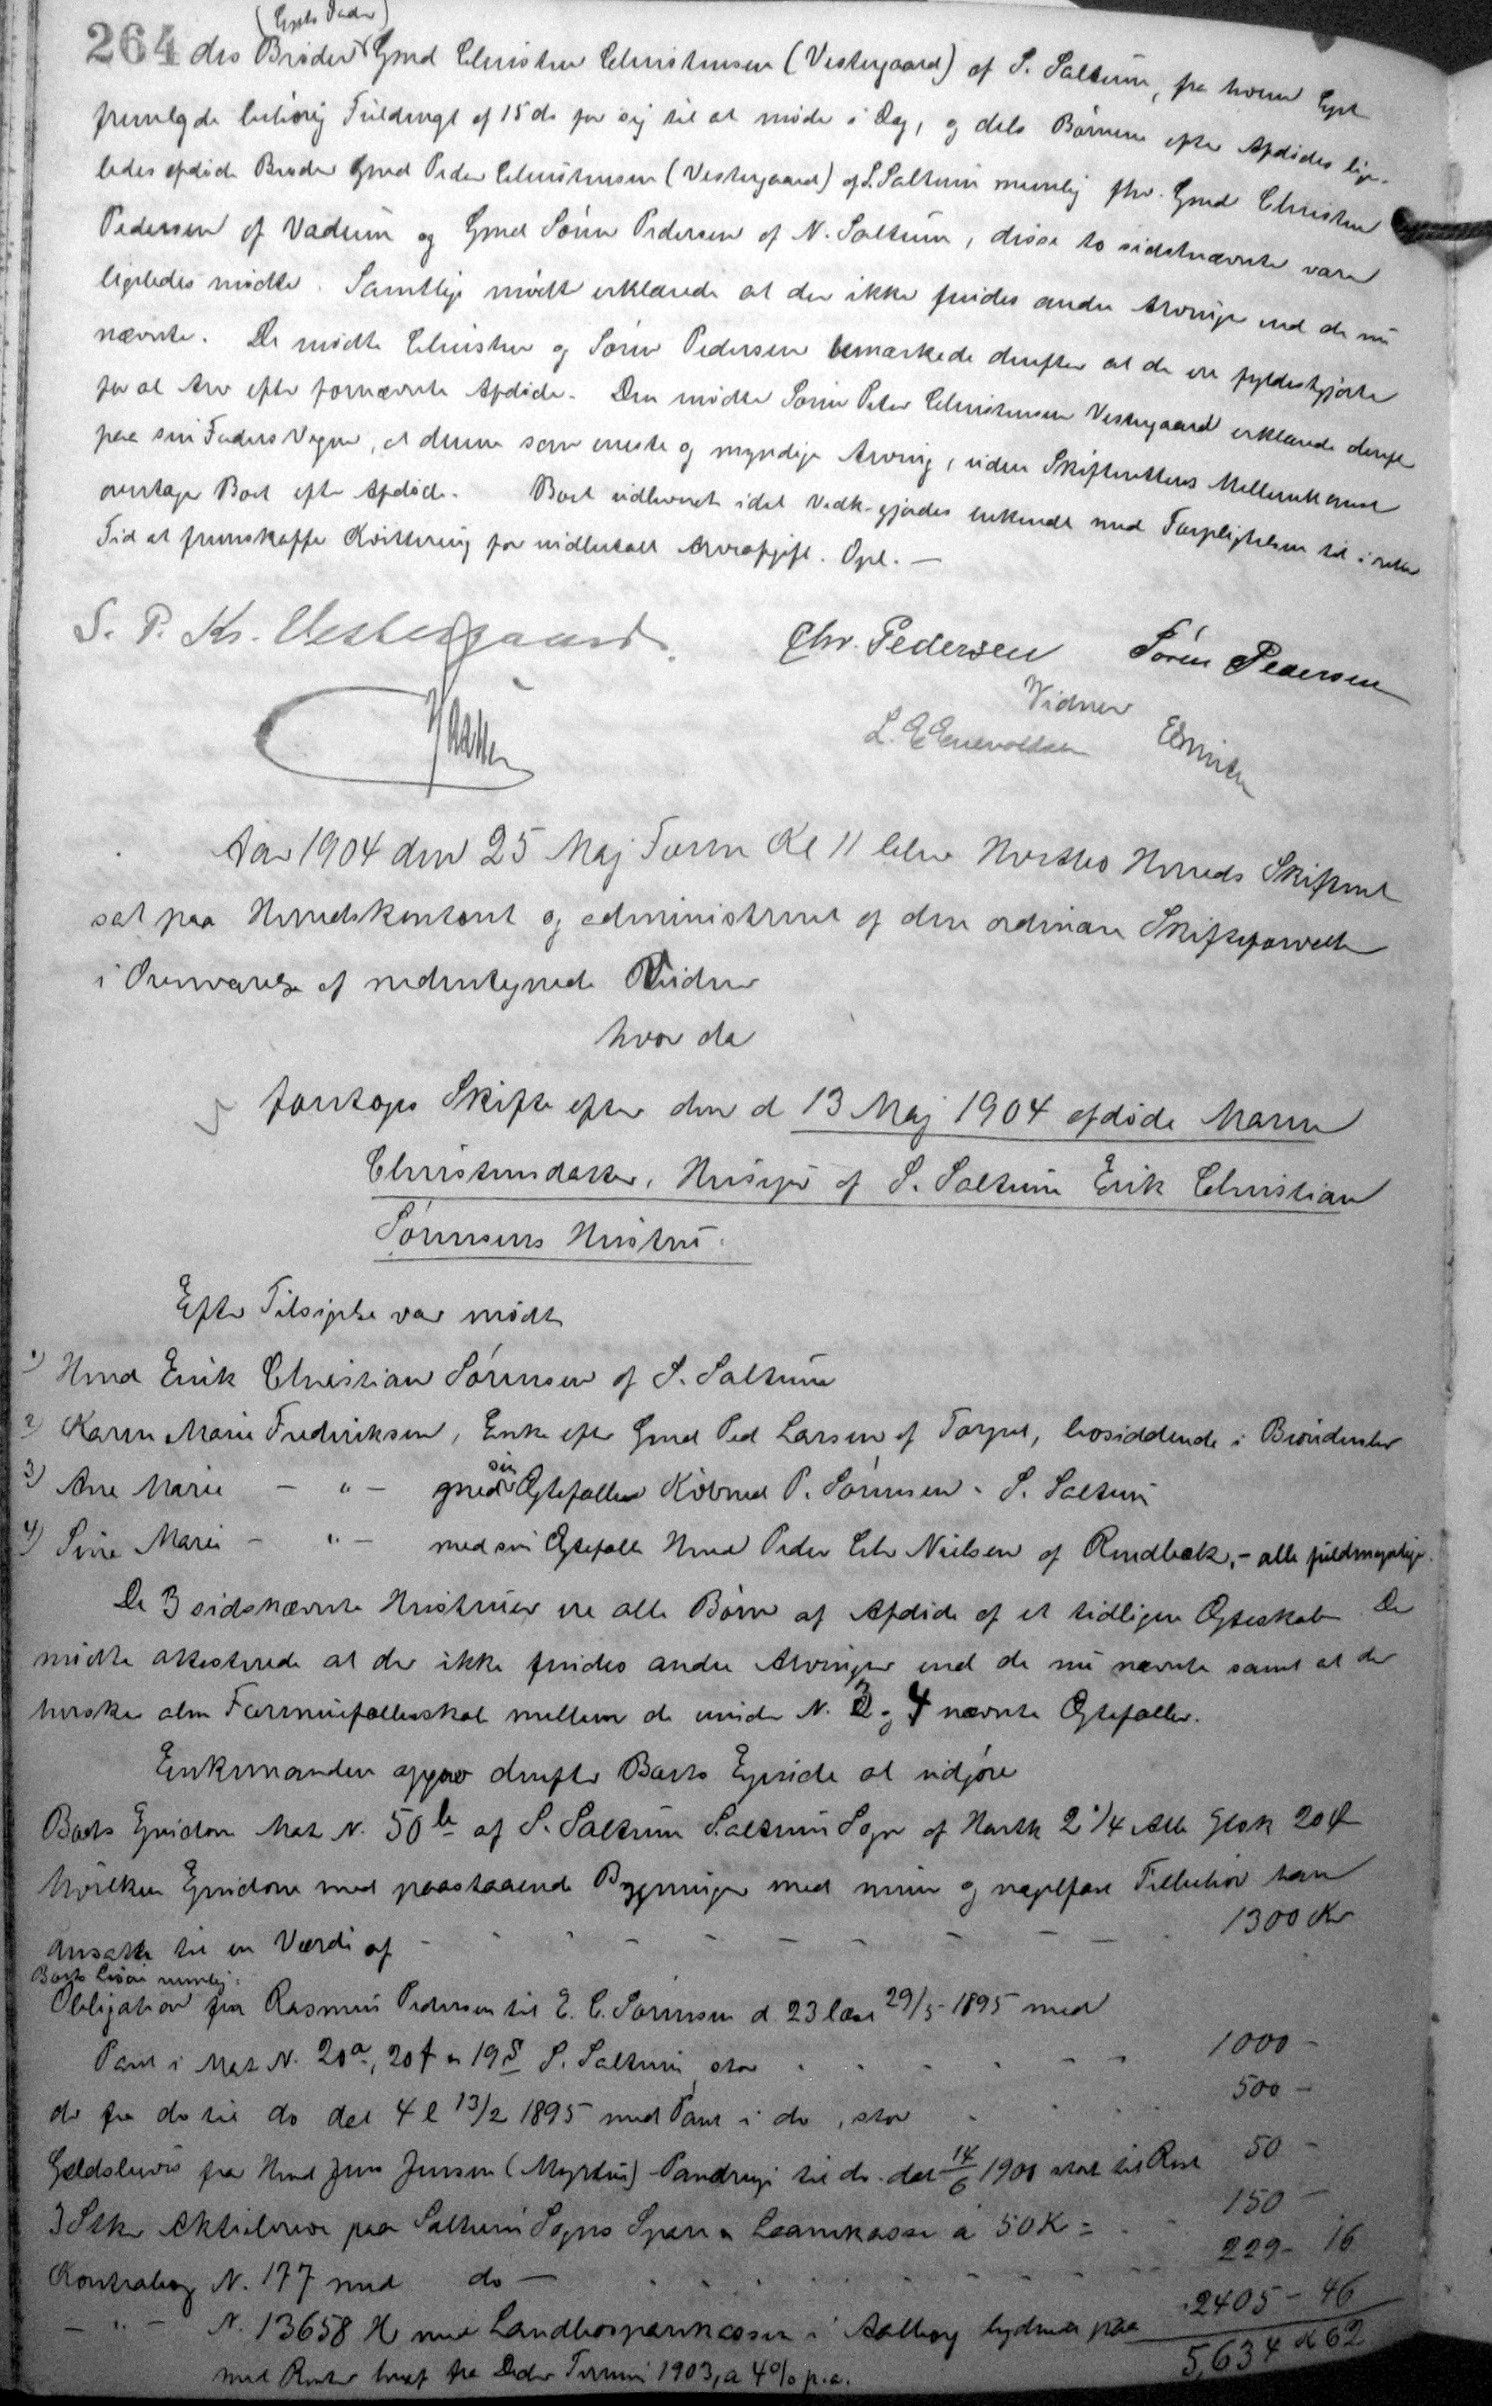 (Cpts Fader)
264 des Broder Gmd Christen Christensen (Vestergaard) af S. Saltum, fra hvem Cpt
fremlagde behørig Fuldmagt af 15 ds for sig til at møde i Dag, og dels Børnene efter Afdødes lige-
ledes afdøde Broder Gmd Peder Christensen (Vestergaard) af S. Saltum nemlig fhv. Gmd Christen
Pedersen af Vadum og Gmd Søren Pedersen af N. Saltum, disse to sidstnævnte vare
ligeledes mødte. Samtlige mødte erklærede at der ikke findes andre Arvinger end de nu
nævnte. De mødte Christen og Søren Pedersen bemærkede derefter at de ere fyldestgjorte
for al Arv efter fornævnte Afdøde. Den mødte Søren Peter Christensen Vestergaard erklærede derefter
paa sin Faders Vegne, at denne som eneste og myndige Arving, uden Skifterettens Mellemkomst
overtager Boet efter Afdøde. Boet udleveret idet Vedk. gjordes bekendt med Forpligtelsen til i rette
Tid at fremskaffe Kvittering for indbetalt Arveafgift. Opl. —
S. P. Kr. Vestergaard. Chr. Pedersen Søren Pedersen
Vidner
L. C. Enevoldsen
Aar 1904 den 25 Maj Form Kl 11 blev Hvetbo Herreds Skifteret
sat paa Herredskontoret og administreret af den ordinære Skifteforvalter
i Overværelse af undertegnede Vidner
hvor da
foretoges Skifte efter den d 13 Maj 1904 afdøde Maren
Christensdatter, Husejer af S. Saltum Erik Christian
Sørensens Hustru.
Efter Tilsigelse var mødt
1) Hmd Erik Christian Sørensen af S. Saltum
2) Karen Marie Frederiksen, Enke efter Gmd Ped Larsen af Torpet, bosiddende i Brønderslev
3) Ane Marie — " — med sin Ægtefælle Købmd P. Sørensen - S. Saltum
4) Sine Marie — " — med sin Ægtefælle Hmd Peder Chr Nielsen af Rendbæk, - alle fuldmyndige.
De 3 sidstnævnte Hustruer ere alle Børn af Afdøde af et tidligere Ægteskab. De
mødte attesterede at der ikke findes andre Arvinger end de nu nævnte samt at der
hersker alm Formuefællesskab mellem de under N. 3 og 4 nævnte Ægtefæller.
Enkemanden opgav derefter Boets Ejendele at udgøre
Boets Ejendom Mat N. 50 b af S. Saltum Saltum Sogn af Hartk 2 1/4 Alb Glsk 20 Ø
hvilken Ejendom med paastaaende Bygninger med mur og nagelfast Tilbehør han
ansatte til en Værdi af - - - - - - - - 1300 Kr
Boets Løsøre nemlig:
Obligation fra Rasmus Pedersen til E. C. Sørensen d. 23 læst 29/5 1895 med
Pant i Mat N. 20a, 20f & 19g S. Saltum stor - - - - 1000 -
do fra do til do dat 4 l 13/2 1895 med Pant i do, stor - - - 500 -
Gældsbevis fra Hmd Jens Jensen (Myrtue) Pandrup til do. dat 14/6 1900 stort til Rest 50 -
3 Stk. Aktiebreve paa Saltum Sogns Spare & Laanekasse à 50 K = - - 150 -
Kontrabog N. 177 med do — - - - - - - - 229 - 16
— " — N. 13658 H med Landbosparekassen i Aalborg lydende paa 2405 - 46
med Renter heraf fra Decbr Termin 1903, a 4% p. a. 5,634 K 62